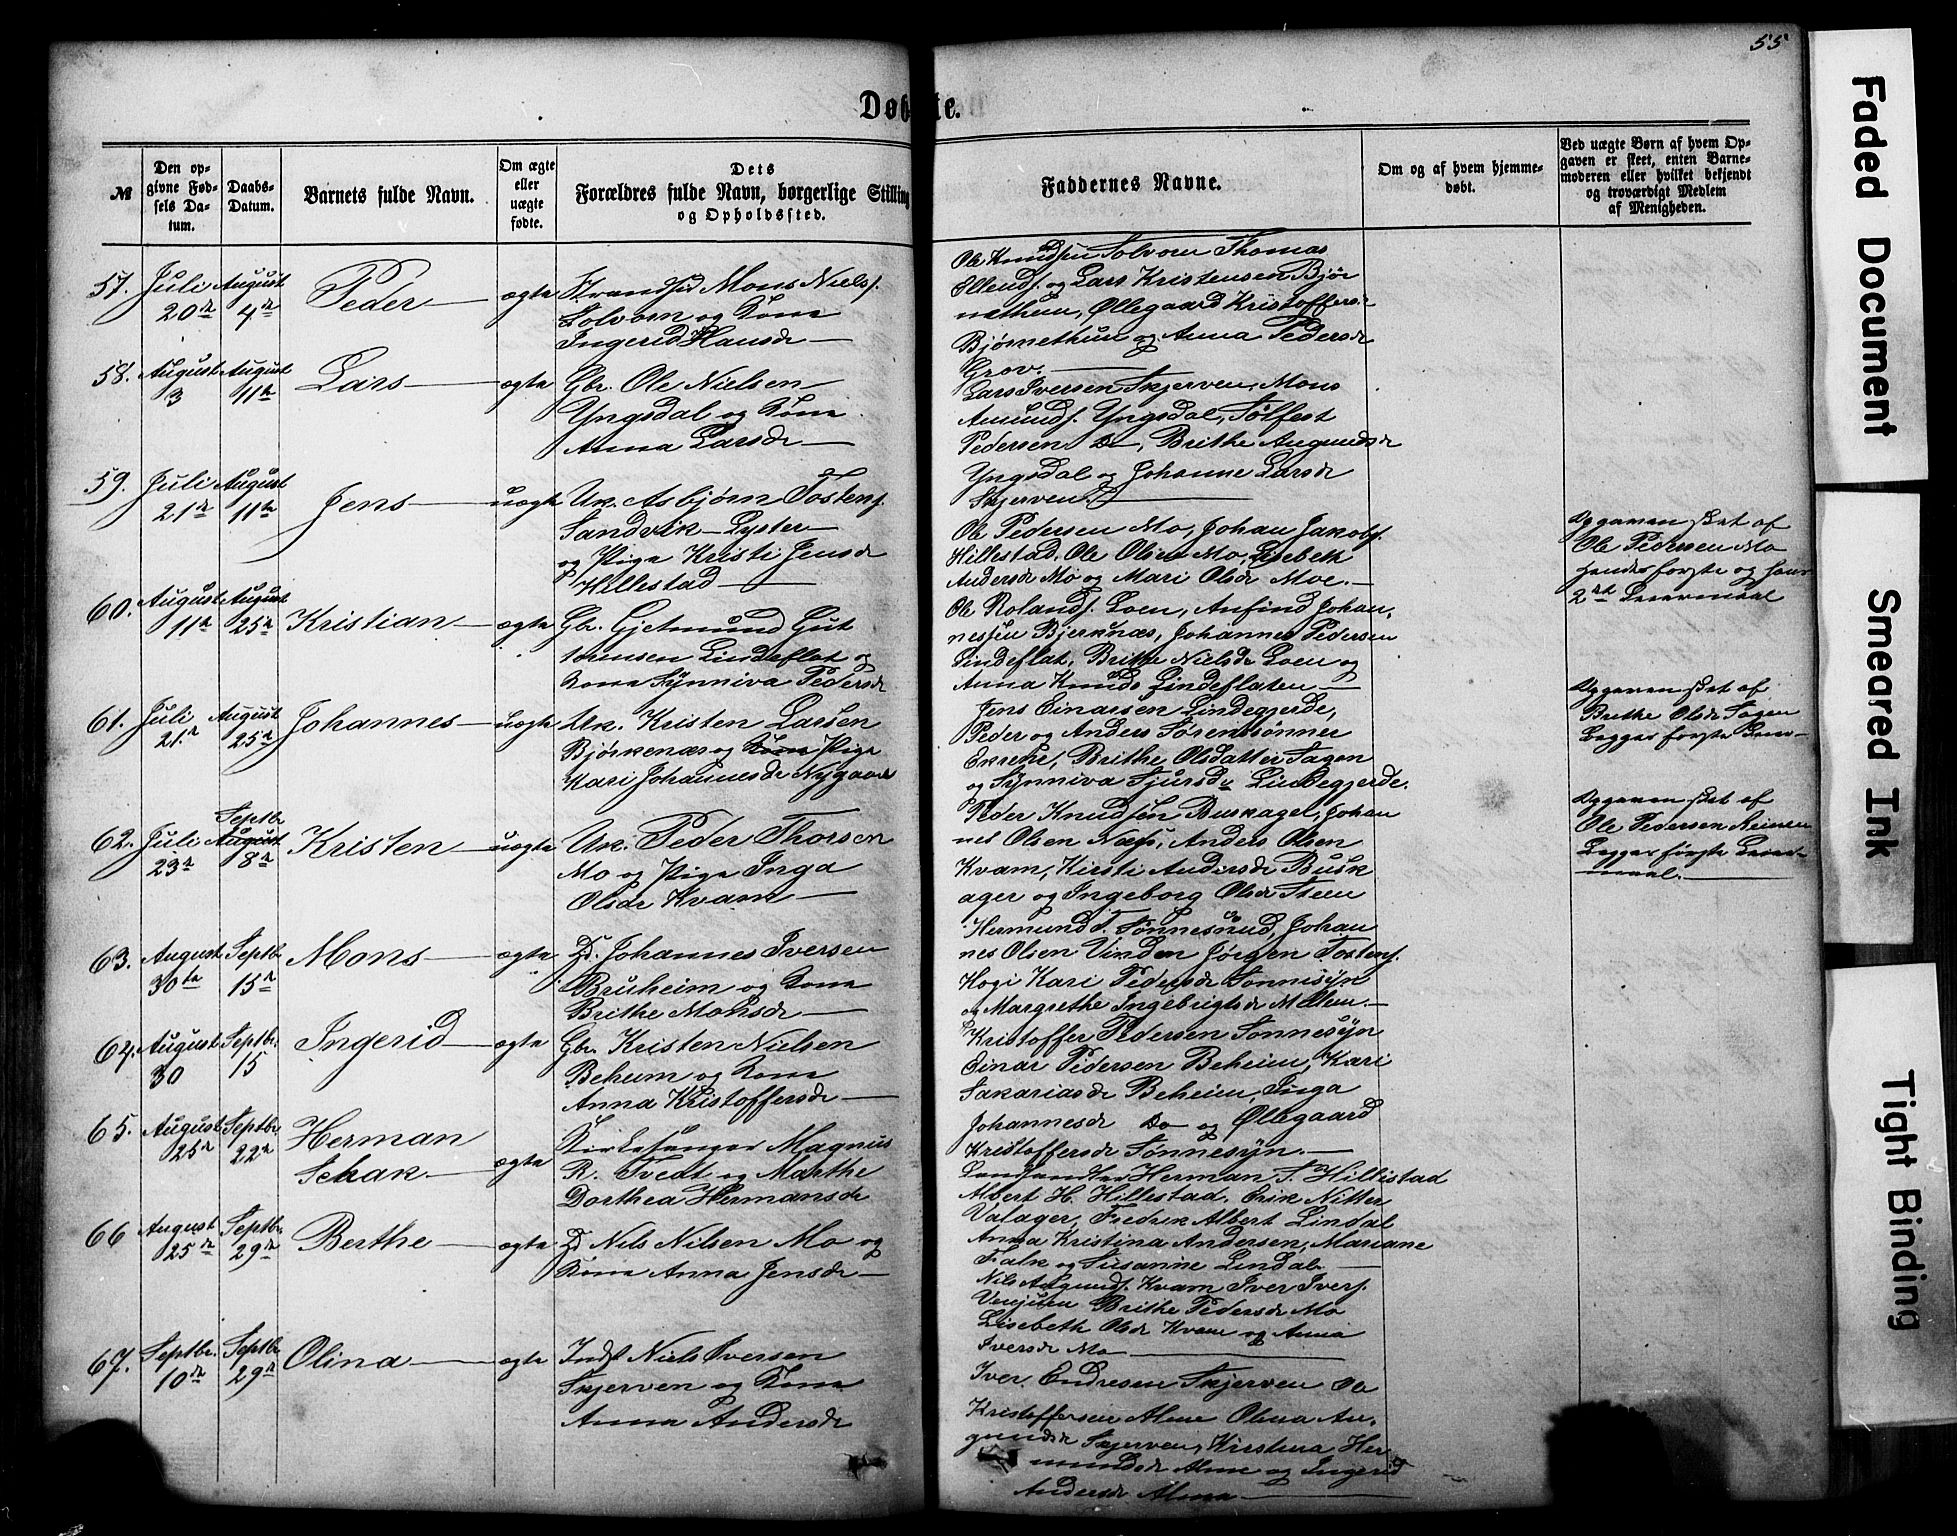 55
Døbte.
№
Den op-
givne Fød-
sels Da-
tum.
Daabs-
Datum.
Barnets fulde Navn.
Om ægte
eller
uægte
fødte.
Dets
Forældres fulde Navn, borgerlige Stilling
og Opholdssted.
Faddernes Navne.
Om og af hvem hjemme-
døbt.
Ved uægte Børn af hvem Op-
gaven er skeet, enten Barne-
moderen eller hvilket bekjendt
og troværdigt Medlem
af Menigheden.
57. Juli 20de August 4de Peder ægte
Strandsid Mons Niels.
Solvorn og Kone
Ingerid Hansdr
Ole Knudsen Solvorn Thomas
Ellends. og Lars Kristensen Bjør
nethun, Øllegaard Kristoffers-
Bjørnethun og Anna Pedersdr
Grov.
58. August 3 August 11te Lars ægte
Gbr. Ole Nielsen
Yngsdal og Kone
Anna Larsdr
Lars Iversen Skjerven, Mons
Amunds. Yngsdal, Sølfest
Pedersen Do, Brithe Augundsdr
Yngsdal og Johanne Larsdr
Skjerven.
59. Juli 21de August 11te Jens uægte
Uk. Asbjørn Tostens.
Sandvik Lyster
og Pige Kristi Jensdr
Hillestad
Ole Pedersen Mo, Johan Jakobs.
Hillestad. Ole Olsen Mo, Lisbeth
Andersdr Mo og Mari Olsdr Moe.
Opgaven sket af
Ole Pedersen Mo
hendes første og hans
2det Leiermaal
60. August 11te August 25de Kristian ægte
Gbr. Gjetmund Gut
tormsen Lindeflat og
Kone Synniva Pedersdr
Ole Rolands. Loen, Anfind Johan,
nessen Bjerknæs, Johannes Pedersen
Lindeflat, Brithe Nielsdr Loen og
Anna Knuds Lindeflaten
61. Juli 21de August 25de Johannes uægte
Uk. Kristen Larsen
Bjørkenæs og Kone Pige
Kari Johannesdr Nygaard
Jens Einarsen Lindegjerde,
Peder og Anders Sørensønner
Ekrene, Brithe Olsdatter Tagen
og Synniva Sjursdr Lindegjerde.
Opgaven sket af
Brithe Olsdr Tagen
Begges første Leier-
62. Juli 23de Septbr August 8de Kristen uægte
Uk. Peder Thorsen
Mo og Pige Inga
Olsdr Kvam
Peder Knudsen Buskager, Johan
nes Olsen Næss, Anders Olsen
Kvam, Kirsti Andersdr Busk
ager og Ingeborg Olsdr Steen
Opgaven sket af
Ole Pedersen
Begges første Leier-
maal.
63. August 30te Septbr 15de Mons ægte
Gd. Johannes Iversen
Bruheim og Kone
Brithe Monsdr
Hermund T. Sønnesyn, Johan
nes Olsen Vinden Jørgen Tostens.
Hogi Kari Pedersdr Sønnesyn
og Margrethe Ingebrigtsdr Mellem.
64. August 30 Septbr. 15 Ingerid ægte
Gbr. Kristen Nielsen
Beheim og Kone
Anna Kristoffersdr
Kristoffer Pedersen Sønnesyn
Einar Pedersen Beheim, Kari
Sakariasdr Beheim, Inga
Johannesdr Do og Øllegaard
Kristoffersdr Sønnesyn.
65. August 25de Septbr 22de Herman
Schak ægte
Kirkesanger Magnus
R. Tvedt og Marthe
Dorthea Hermansdr
Landhandler Herman S. Hillestad
Albert H. Hillestad. Erik Nitter
Valager, Fredrik Albert Lindal
Anna Kristina Andersen, Mariane
Falk og Susanne Lindal
66 August 25de Septbr. 29de Berthe ægte
Gd Nils Nilsen Mo og
Kone Anna Jensdr
Nils Augunds. Kvam Iver Ivers.
Venjum Brithe Pedersdr Mo
Lisebeth Olsdr Kvam og Anna
Iversdr Mo
67. Septbr. 10de Septbr. 29de Olina ægte
Inds Niels Iversen
Skjerven og Kone
Anna Andersdr
Iver Endresen Skjerven Ole
Kristoffersen Alme Olina Au,
gundsdr Skjerven, Kirstina Her
mundsdr Alme og Ingerid
Andersdr Alme
Faded Document
Smeared Ink
Tight Binding